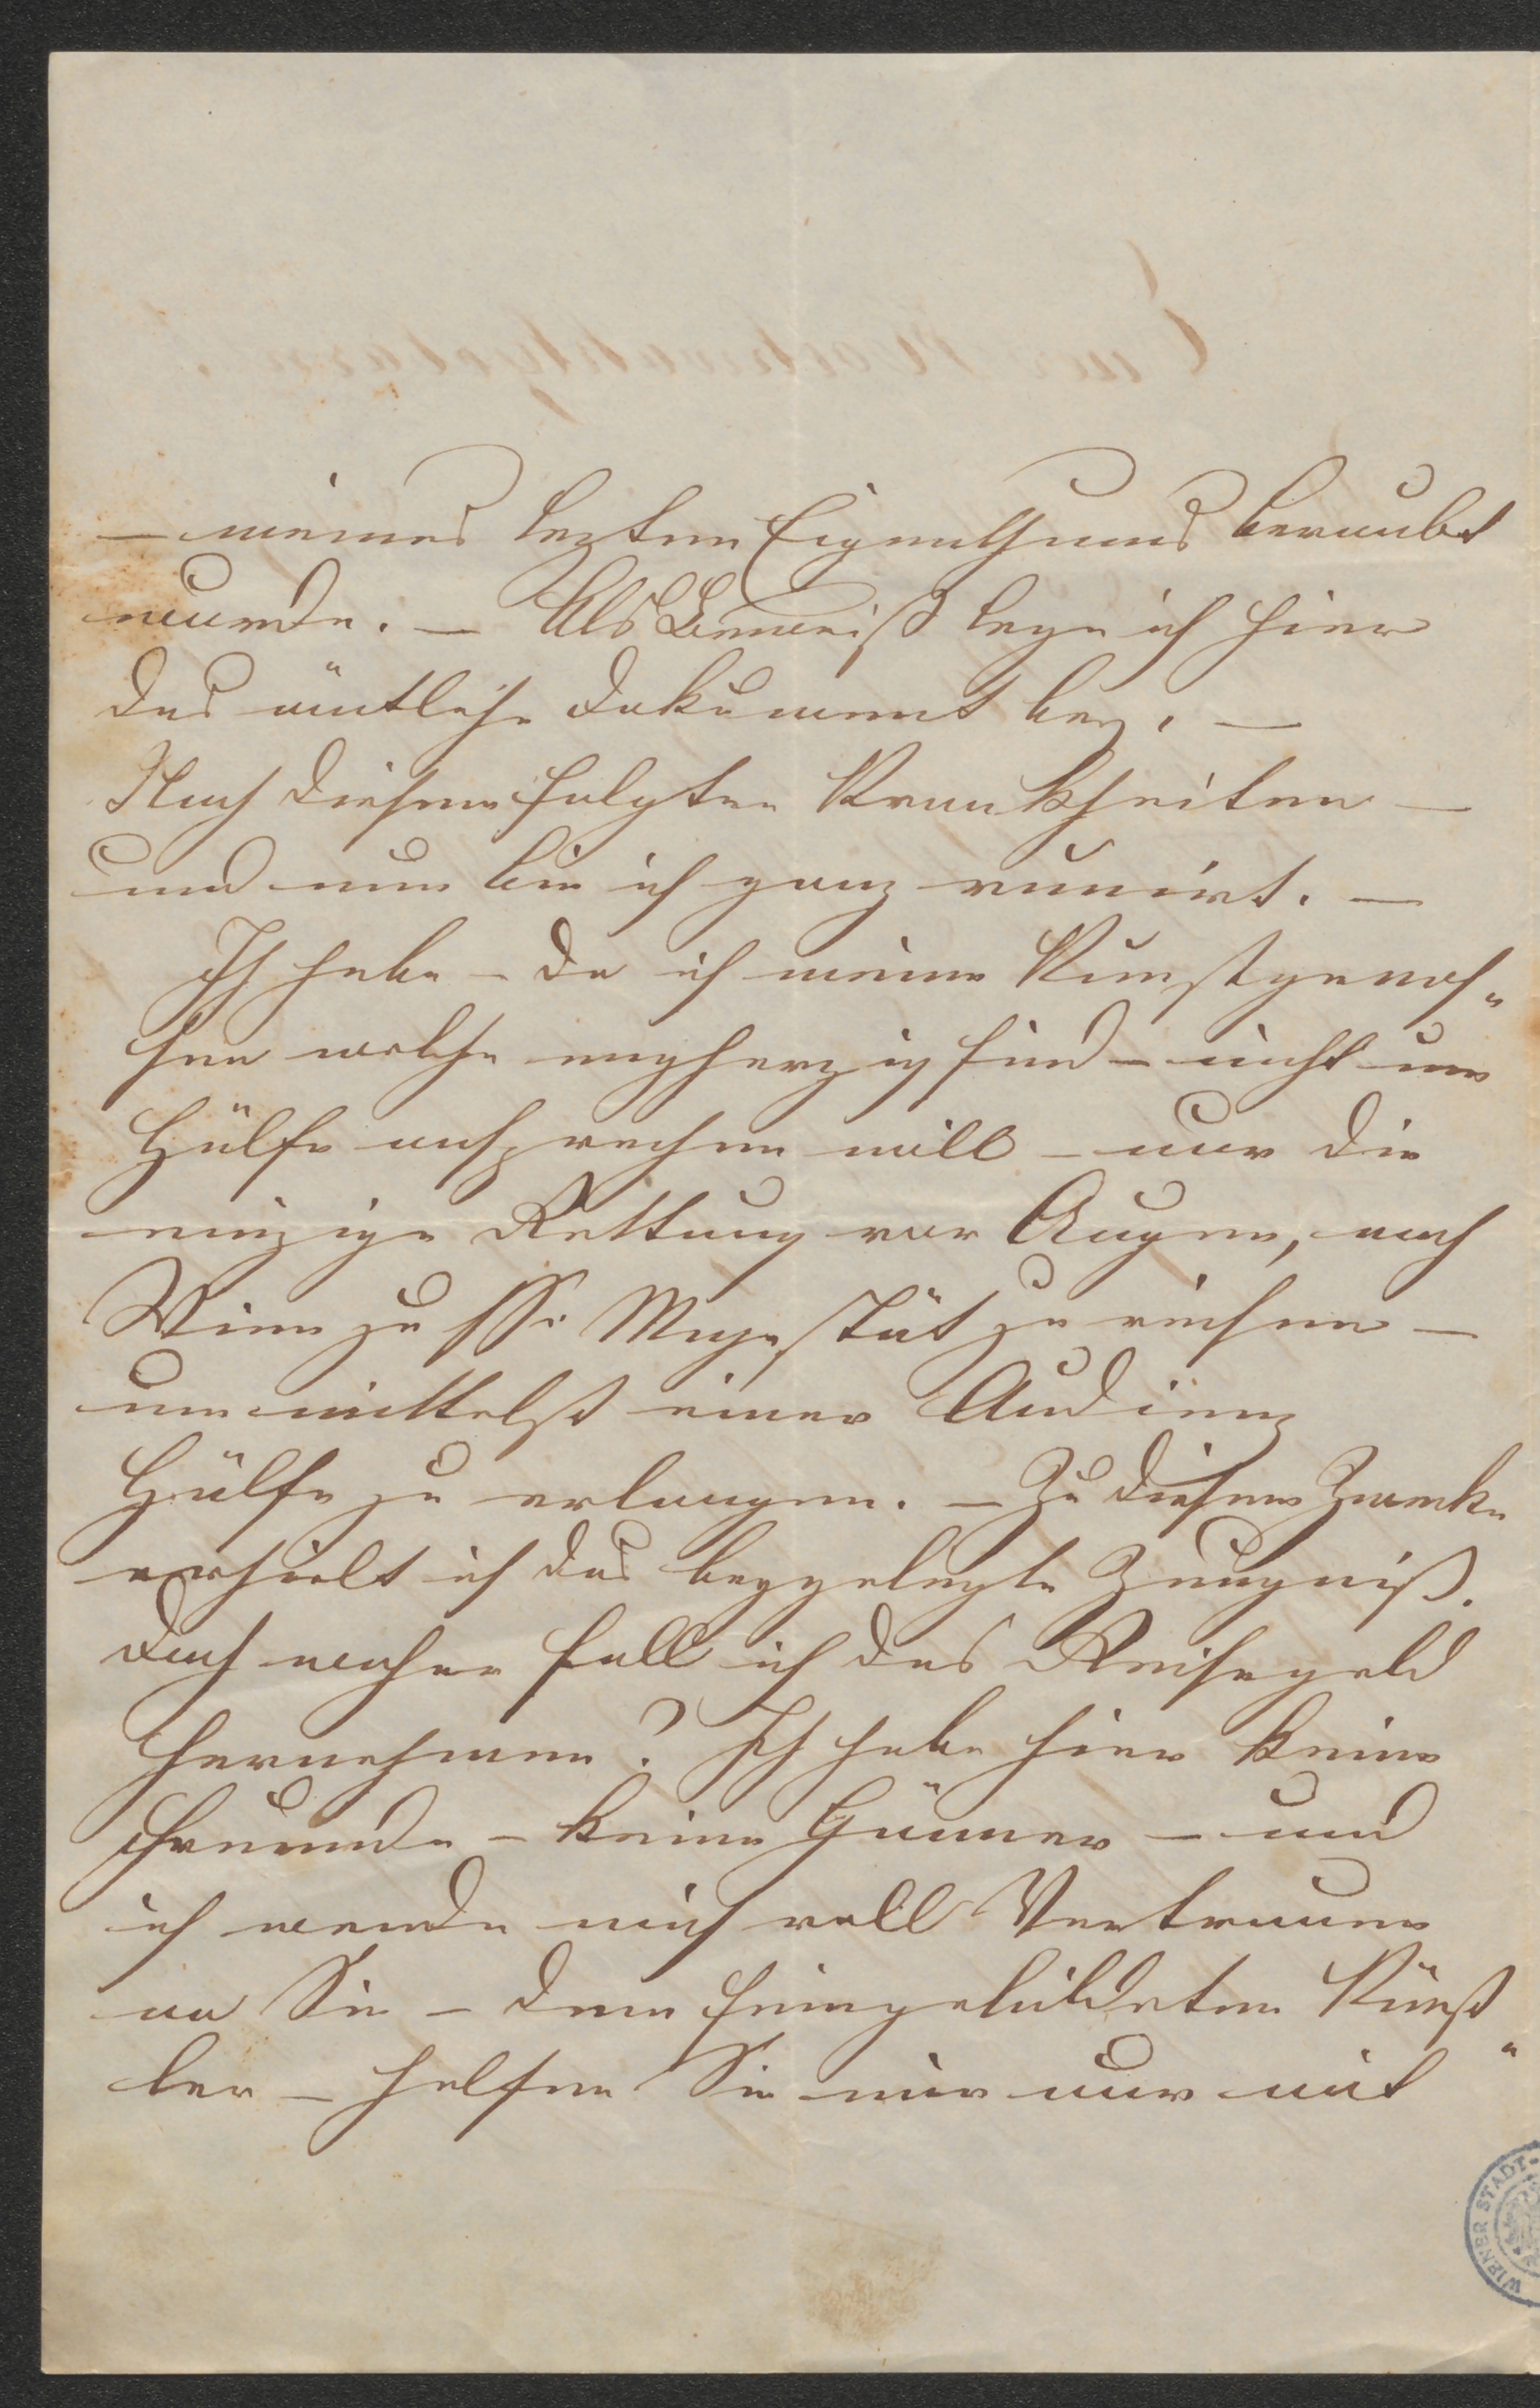 – meines lezten Eigenthums beraubt
wurde. – Als Beweiß lege ich hier
das ämtliche Dokument bey. –
Nach diesem folgten Krankheiten –
und nun bin ich ganz ruinirt. –
Ich habe – da ich meine Kunstgenos„
sen welche engherzig sind – nicht um
Hülfe ansprechen will – nur die
einzige Rettung vor Augen, nach
Wien zu Sr. Majestät zu reisen –
um mittelst einer Audienz
Hülfe zu erlangen. – Zu diesem Zwecke
erhielt ich das beygelegte Zeugniß.
Doch woher soll ich das Reisegeld
hernehmen? Ich habe hier keine
Freunde – keine Gönner – und
ich wende mich voll Vertrauen
an Sie – dem feingebildeten Künst„
ler – helfen Sie mir nur mit
WIENER STADT-